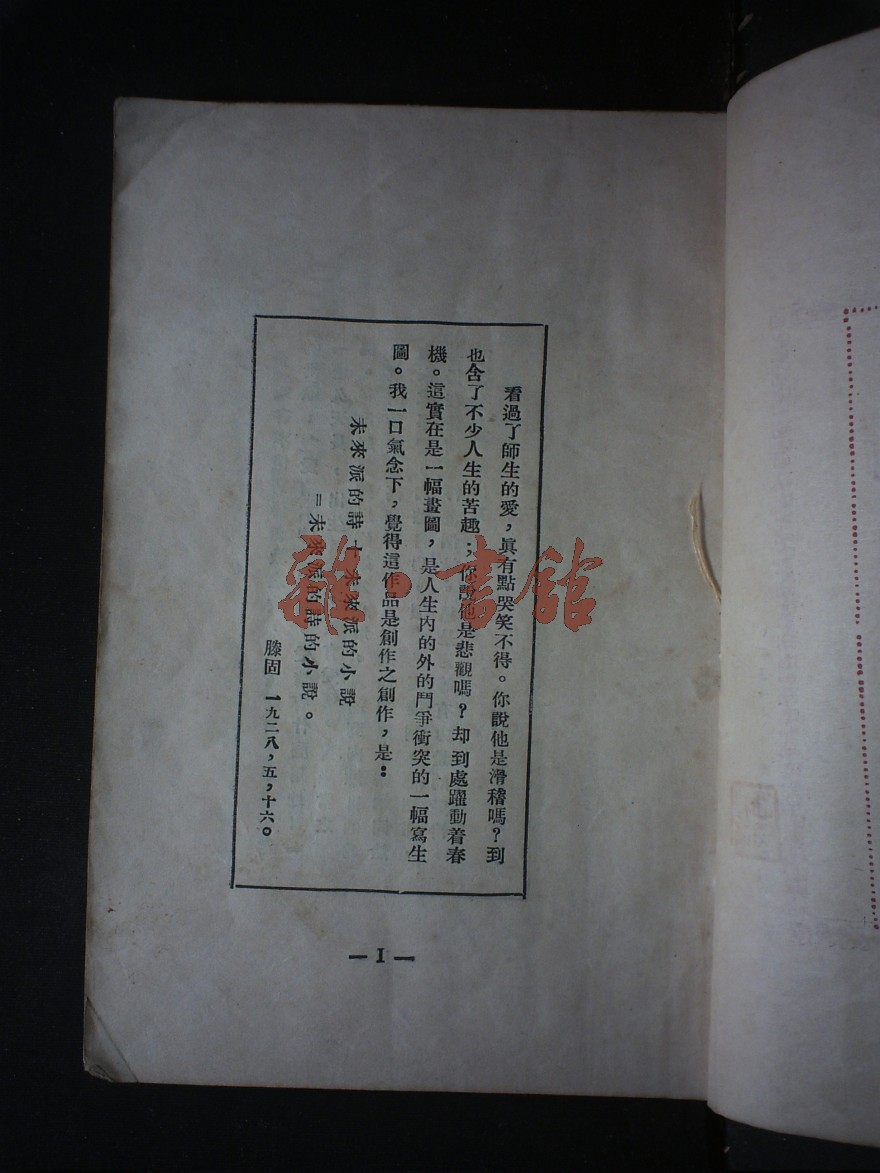 看過了師生的愛，眞有點哭笑不得。你說他是滑稽嗎？到
也含了不少人生的苦趣；你說他是悲觀嗎？却到處躍動着春
機。這實在是一幅畫圖，是人生內的外的鬥爭衝突的一幅寫生
圖。我一口氣念下，覺得這作品是創作之創作，是：
未來派的詩＋未來派的小說
＝未來派的詩的小說。
滕固 一九二八，五，十六。
— I —
雜·書館